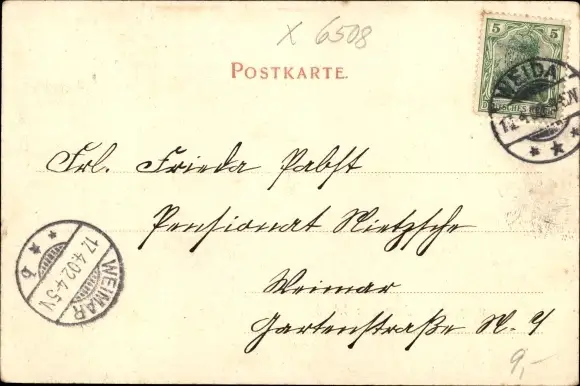 X 6508
POSTKARTE.
5 5
WEIDA
DEUTSCHES REICH
Frl. Frieda Pabst
Pensionat Nietzsche
Weimar
Gartenstraße N. 4
WEIMAR
17.4.02.4-5N.
b
9,-